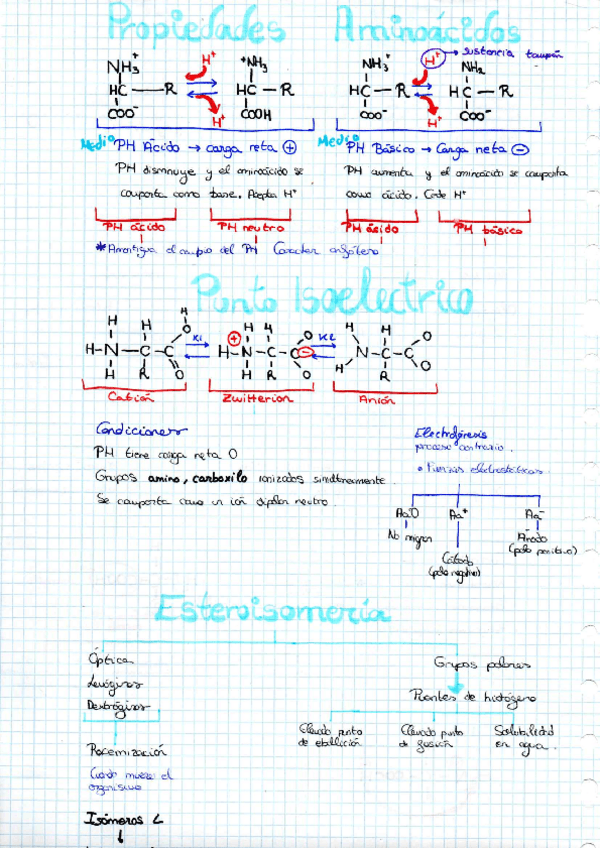 Propiedades Aminoácidos
H⁺ → sustancia tampón
NH₃⁺ H⁺ ⁺NH₃ NH₃⁺ H⁺ NH₂
HC — R HC — R HC — R HC — R
COO⁻ H⁺ COOH COO⁻ H⁺ COO⁻
Medio PH Ácido → carga neta ⊕ Medio PH Básico → Carga neta ⊖
PH disminuye y el aminoácido se PH aumenta y el aminoácido se comporta
comporta como base. Acepta H⁺ como ácido. Cede H⁺
PH ácido PH neutro PH ácido PH básico
*Amortigua el cambio del PH Caracter anfótero
Punto Isoelectrico
H H H H H H H
H-N-C-C O K1 ⊕ H-N-C-C O ⊖ K2 N-C-C O
H R O H R O H R O
Catión Zwitterion Anión
Condiciones
PH tiene carga neta 0
Grupos amino, carboxilo ionizados simultneamente
Se comporta como un ión dipolar neutro.
Electroforesis
proceso contrario.
• Fuerzas electrostáticas
Aa0 Aa⁺ Aa⁻
No migran Cátodo (polo negativo) Ánodo (polo positivo)
Esteroisomería
Óptica Grupos polares
Levógiros
Dextrógiros Puentes de hidrógeno
Elevado punto de ebullición Elevado punto de fusión Solubilidad en agua.
Racemización
Cuando muere el
organismo
Isómeros L